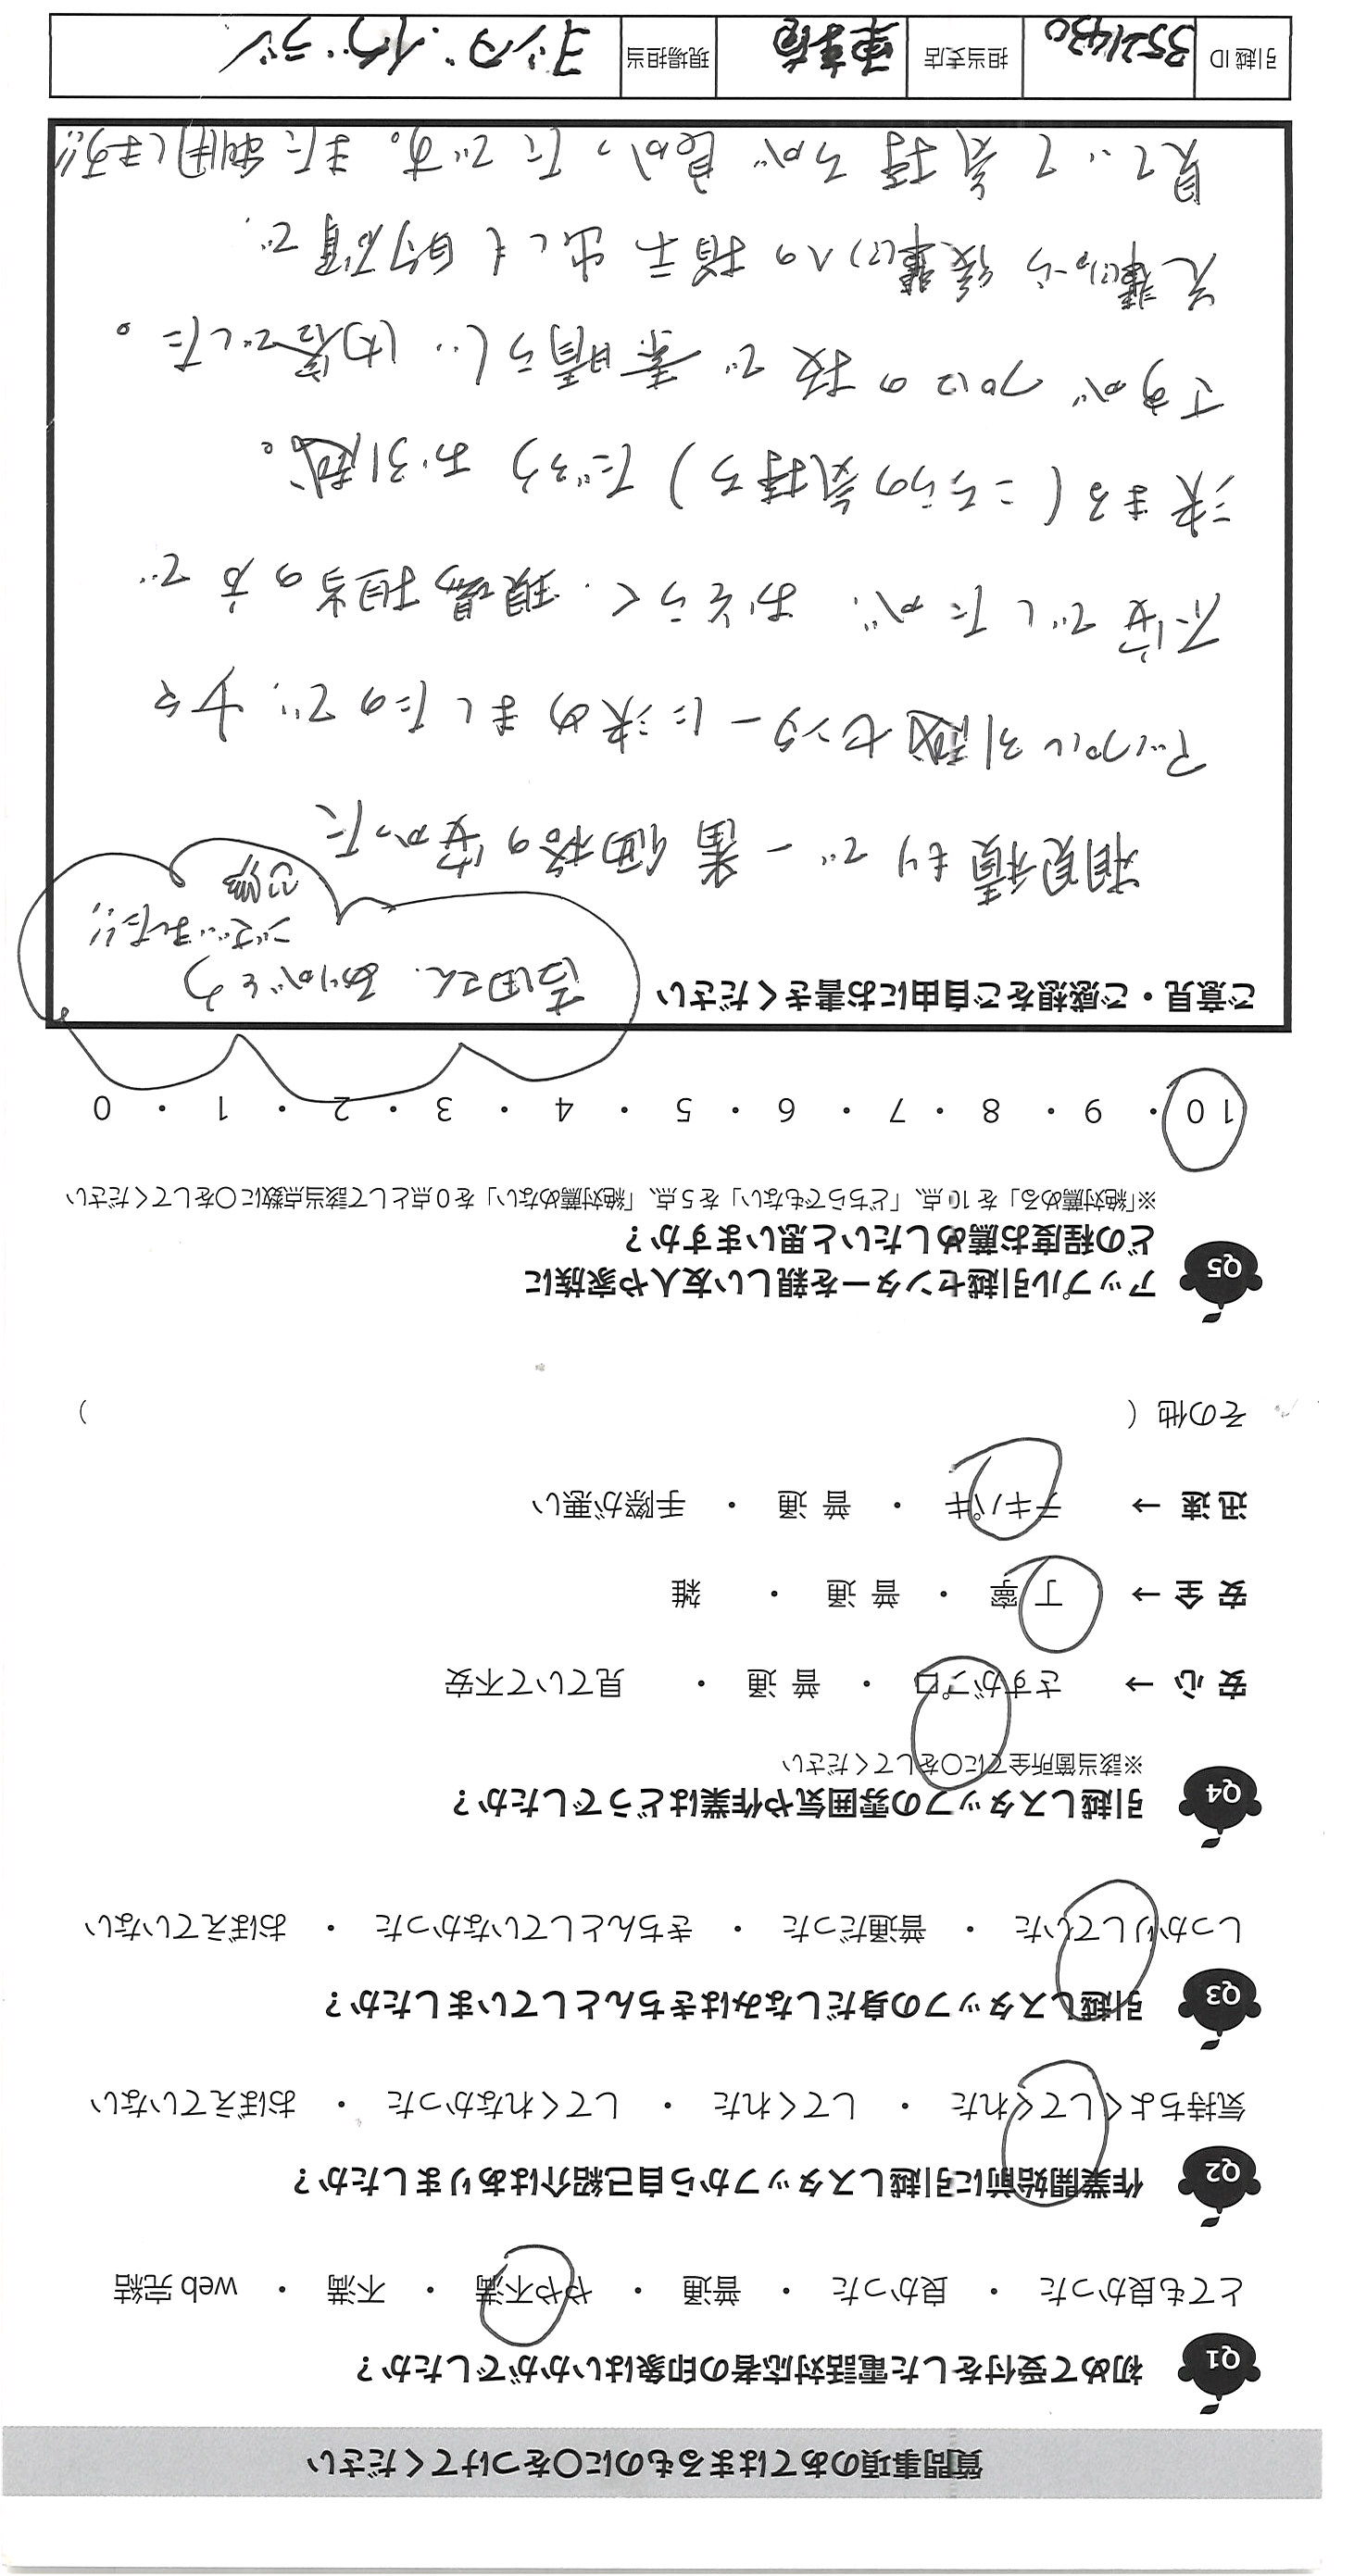 質問事項のあてはまるものに〇をつけてください
Q1 初めて受付をした電話対応者の印象はいかがでしたか？
とても良かった ・ 良かった ・ 普通 ・ やや不満 ・ 不満 ・ web 完結
Q2 作業開始前に引越しスタッフから自己紹介はありましたか？
気持ちよくしてくれた ・ してくれた ・ してくれなかった ・ おぼえていない
Q3 引越しスタッフの身だしなみはきちんとしていましたか？
しっかりしていた ・ 普通だった ・ きちんとしていなかった ・ おぼえていない
Q4 引越しスタッフの雰囲気や作業はどうでしたか？
※該当箇所全てに〇をしてください
安 心 → さすがプロ ・ 普 通 ・ 見ていて不安
安 全 → 丁 寧 ・ 普 通 ・ 雑
迅 速 → テキパキ ・ 普 通 ・ 手際が悪い
その他（ ）
Q5 アップル引越センターを親しい友人や家族に
どの程度お薦めしたいと思いますか？
※「絶対薦める」を 10 点、「どちらでもない」を 5 点、「絶対薦めない」を 0 点として該当点数に〇をしてください
10 ・ 9 ・ 8 ・ 7 ・ 6 ・ 5 ・ 4 ・ 3 ・ 2 ・ 1 ・ 0
ご意見・ご感想をご自由にお書きください
吉田さん、ありがとう
ございました!!
相見積もりで一番価格の安かった
アップル引越センターに決めましたので、少々
不安でしたが、おそらく、現場担当の方で
決まる(こちらの気持ち)だろうお引越。
さすがプロの技で素晴らしい内容でした。
先輩(?)から後輩(?)への指示出しも的確で、
見ていて気持ちが良かったです。また利用します!!
引越 ID 3521430 担当支店 東京 現場担当 ヨシダ・